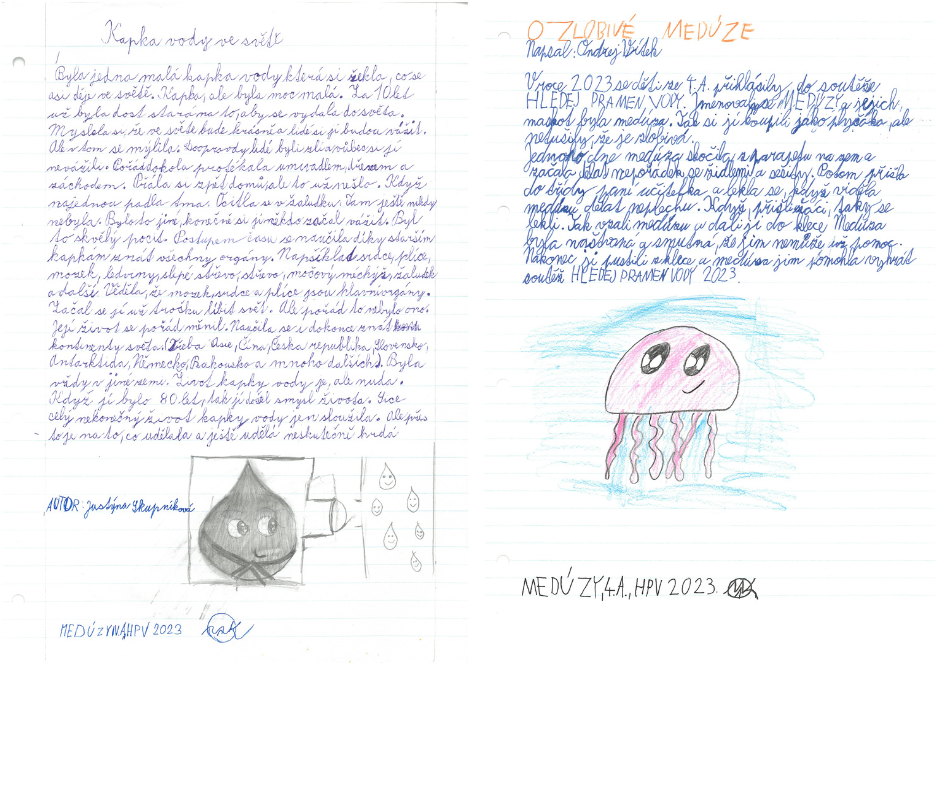 Kapka vody ve světě
Byla jedna malá kapka vody která si řekla, co se
asi děje ve světě. Kapka, ale byla moc malá. Za 10 let
už byla dost stará na to, aby se vydala do světa.
Myslela si, že ve světe bude krásně a lidé si ji budou vážit.
Ale v tom se mýlila. Doopravdy lidé byli zlí a vůbec si jí
nevážili. Pořád dokola protékala umyvadlem, dřezem a
záchodem. Přála si zpět domů, ale to už nešlo. Když
najednou padla tma. Ocitla se v žaludku. Tam ještě nikdy
nebyla. Bylo to jiné, konečně si jí někdo začal vážit. Byl
to skvělý pocit. Postupem času se naučila díky starším
kapkám znát všechny orgány. Například srdce, plíce,
mozek, ledviny, slepé střevo, střevo, močový měchýř, žaludek
a další. Věděla, že mozek, srdce a plíce jsou hlavní orgány.
Začal se jí už trošku líbit svět. Ale pořád to nebylo ono.
Její život se pořád měnil. Naučila se i dokonce znát
kontinenty světa. (Třeba Asie, Čína, Česká republika, Slovensko,
Antarktida, Německo, Rakousko a mnoho dalších). Byla
vždy v jiné zemi. Život kapky vody je, ale nuda.
Když jí bylo 80 let, tak jí došel smysl života. Sice
celý nekonečný život kapky vody jen sloužila. Ale přes
to je na to, co udělala a ještě udělá neskutečně hrdá
AUTOR: Justýna Skupníková
MEDÚZY, HPV 2023
O ZLOBIVÉ MEDÚZE
Napsal: Ondřej Vrítek
V roce 2023 se děti ze 4.A přihlásily do soutěže
HLEDEJ PRAMEN VODY. Jmenovali se MEDÚZY a jejich,
maskot byla medúza. Tak si ji koupili jako plyšáka, ale
netušily, že je zlobivá.
Jednoho dne medúza skočila z parapetu na zem a
začala dělat nepořádek se židlemi a sešity. Potom přišla
do třídy paní učitelka a lekla se, když viděla
medúzu dělat neplechu. Když, přišli žáci, taky se
lekli. Tak vzali medúzu a dali ji do klece. Medúza
byla naštvaná a smutná, že jim nemůže už pomoc.
Nakonec ji pustili z klece a medúza jim pomohla vyhrát
soutěž HLEDEJ PRAMEN VODY 2023.
MEDÚZY, 4.A., HPV 2023.